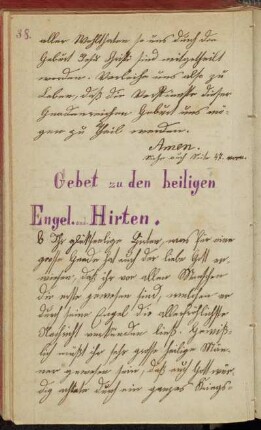 38.
aller Wohlthaten so uns durch die
Geburt Jesu Christi sind mitgetheilt
worden. Verleihe uns also zu
leben, daß die Verdienste dieser
Gnadenreichen Geburt uns mö-
gen zu Theil werden.
Amen.
Siehe auch Seite 47.
Gebet zu den heiligen
Engel und Hirten.
O Ihr glückselige Hirten, was für eine
große Gnade hat euch der liebe Gott er-
wiesen, daß ihr vor allen Menschen
die erste gewesen sind, welchen er
durch seine Engel die allerfröhlichste
Botschaft verkünden ließ. Gewiß-
lich müßt ihr sehr große heilige Män-
ner gewesen sein, daß euch Gott wür-
dig achtete durch ein ganzes Kriegs-